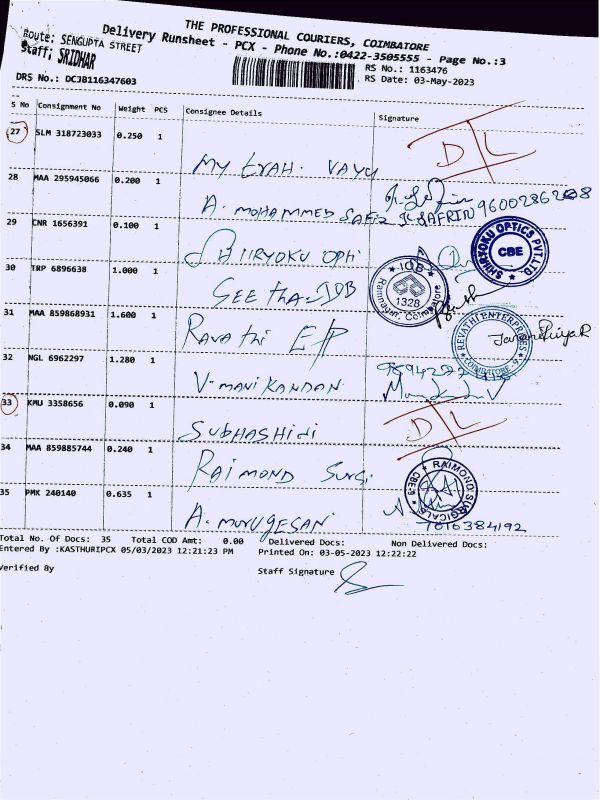 THE PROFESSIONAL COURIERS, COIMBATORE
Delivery Runsheet - PCX - Phone No.:0422-3505555 - Page No.:3
Route: SENGUPTA STREET
Staff: SRIDHAR
RS No.: 1163476
RS Date: 03-May-2023
DRS No.: DCJB116347603
S No Consignment No Weight PCS Consignee Details Signature
27 SLM 318723033 0.250 1 D/L
My Vayu
28 MAA 295945066 0.200 1
A. MOHAMMED SAFIR J. SAFRIN 9600286208
29 CNR 1656391 0.100 1
SHIIRYOKU OPTI
SHIIRYOKU OPTICS PVT.LTD. CBE
30 TRP 6896638 1.000 1
GEETHA IOB
IOB 1328 Ramnagar, Coimbatore
31 MAA 859868931 1.600 1
Ravathi E/P
REVATHI ENTERPRISES COIMBATORE-9
32 NGL 6962297 1.280 1
V. MANIKANDAN
33 KMU 3358656 0.090 1 D/L
SUBHASHINI
34 MAA 859885744 0.240 1
RAIMOND Surgi
RAIMOND SURGICALS CBE-9
35 PMK 240140 0.635 1
A. MURUGESAN 7016384192
Total No. Of Docs: 35 Total COD Amt: 0.00 Delivered Docs: Non Delivered Docs:
Entered By :KASTHURIPCX 05/03/2023 12:21:23 PM Printed On: 03-05-2023 12:22:22
Verified By Staff Signature